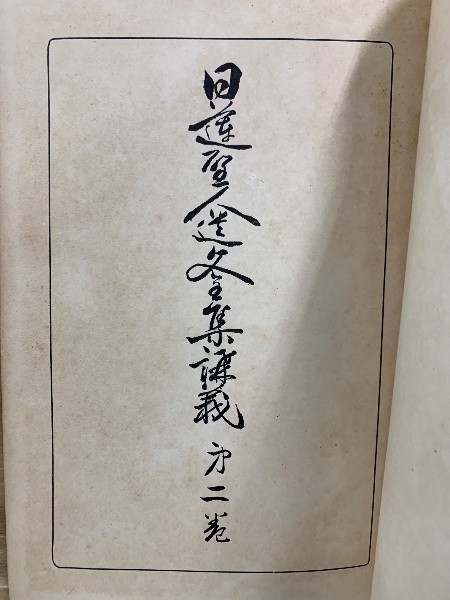 日蓮聖人遺文全集講義 第二巻